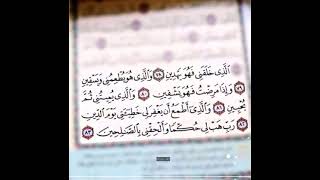 الَّذِي خَلَقَنِي فَهُوَ يَهْدِينِ ٧٨ وَالَّذِي هُوَ يُطْعِمُنِي وَيَسْقِينِ
٧٩ وَإِذَا مَرِضْتُ فَهُوَ يَشْفِينِ ٨٠ وَالَّذِي يُمِيتُنِي ثُمَّ
يُحْيِينِ ٨١ وَالَّذِي أَطْمَعُ أَن يَغْفِرَ لِي خَطِيئَتِي يَوْمَ الدِّينِ
٨٢ رَبِّ هَبْ لِي حُكْمًا وَأَلْحِقْنِي بِالصَّالِحِينَ ٨٣